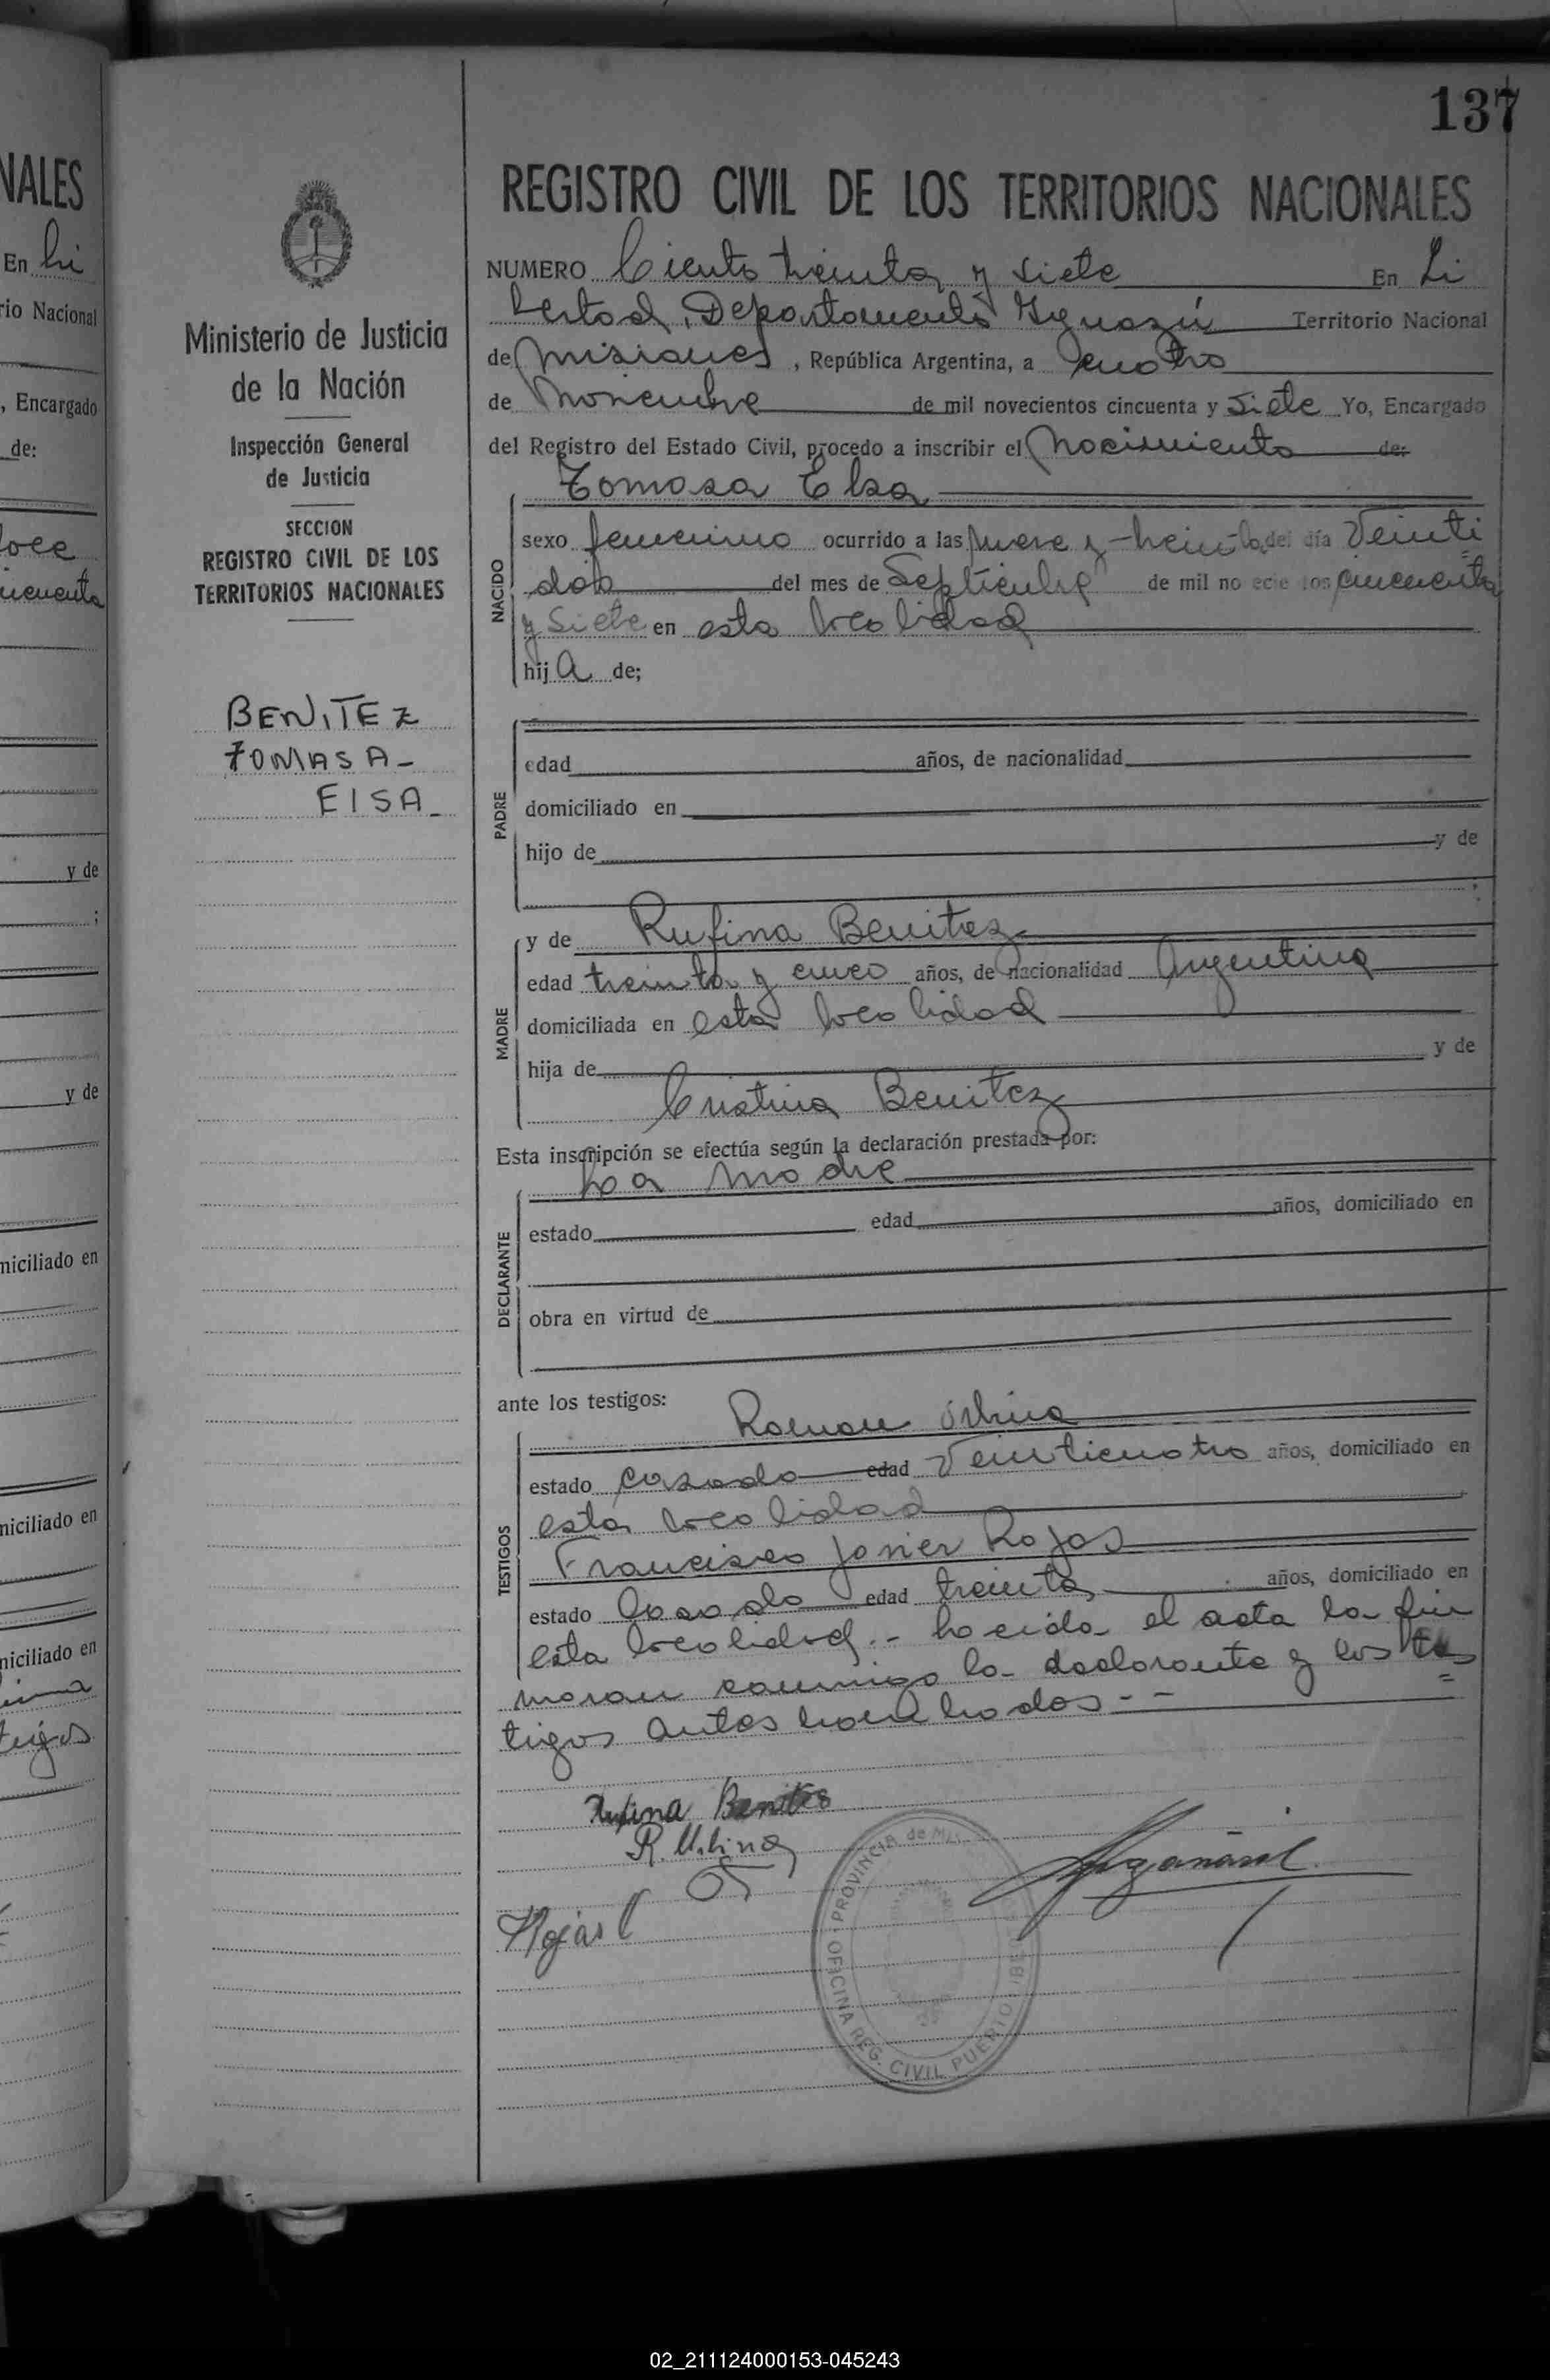 137
NALES
En Li
rio Nacional
, Encargado
de:
doce
cincuenta
y de
;
y de
miciliado en
miciliado en
miciliado en
tigos
Ministerio de Justicia
de la Nación
Inspección General
de Justicia
SECCION
REGISTRO CIVIL DE LOS
TERRITORIOS NACIONALES
BENITEZ
TOMASA-
ElSA-
REGISTRO CIVIL DE LOS TERRITORIOS NACIONALES
NUMERO Ciento treinta y siete En Li
bertad, Departamento Iguazú Territorio Nacional
de Misiones, República Argentina, a cuatro
de Noviembre de mil novecientos cincuenta y siete Yo, Encargado
del Registro del Estado Civil, procedo a inscribir el Nacimiento de:
Tomasa Elsa
NACIDO
sexo femenino ocurrido a las nueve y treinta del día Veinti
dós del mes de Septiembre de mil no ecie tos cincuenta
y siete en esta localidad
hij a de;
PADRE
edad años, de nacionalidad
domiciliado en
hijo de y de
;
MADRE
y de Rufina Benitez
edad treinta y cinco años, de nacionalidad Argentina
domiciliada en esta localidad
hija de y de
Cristina Benitez
Esta inscripción se efectúa según la declaración prestada por:
DECLARANTE
La madre
estado edad años, domiciliado en
obra en virtud de
ante los testigos:
TESTIGOS
Roman Urbina
estado casado edad Veinticuatro años, domiciliado en
esta localidad
Francisco Javier Rojas
estado Casado edad treinta años, domiciliado en
esta localidad.- Leeida el acta la fir
maran conmigo la declarante y los tes
tigos antes nombrados--
Rufina Benites
R. Urbina
Rojas
PROVINCIA de MI
OFICINA REG. CIVIL PUERTO LIBE
02_211124000153-045243